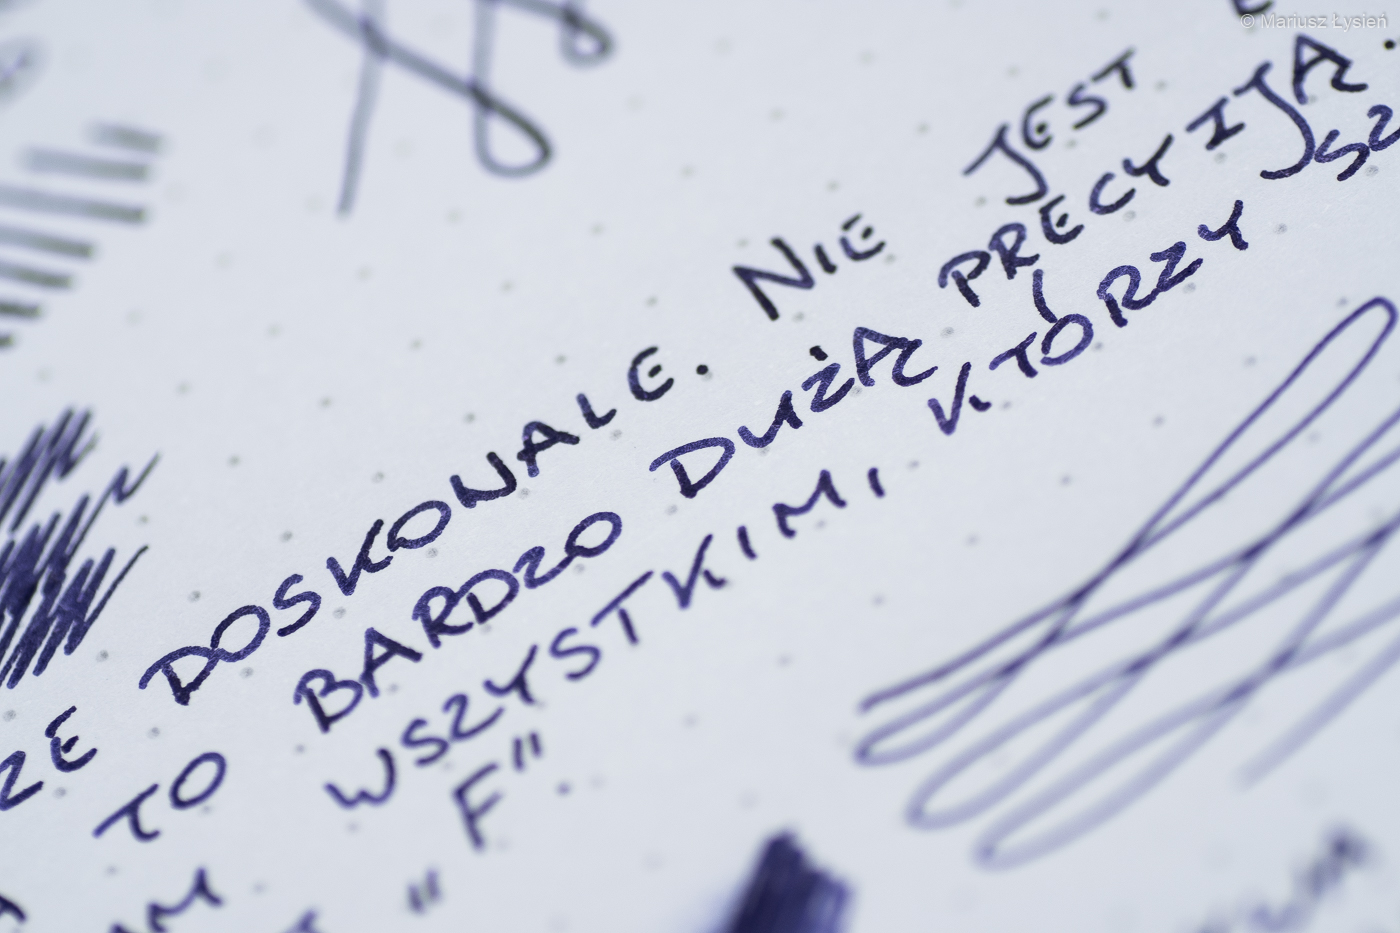 © Mariusz Łysień
ZE DOSKONALE. NIE JEST
TO BARDZO DUŻĄ PRECYIJĄ.
WSZYSTKIM, KTÓRZY SZ
"F".